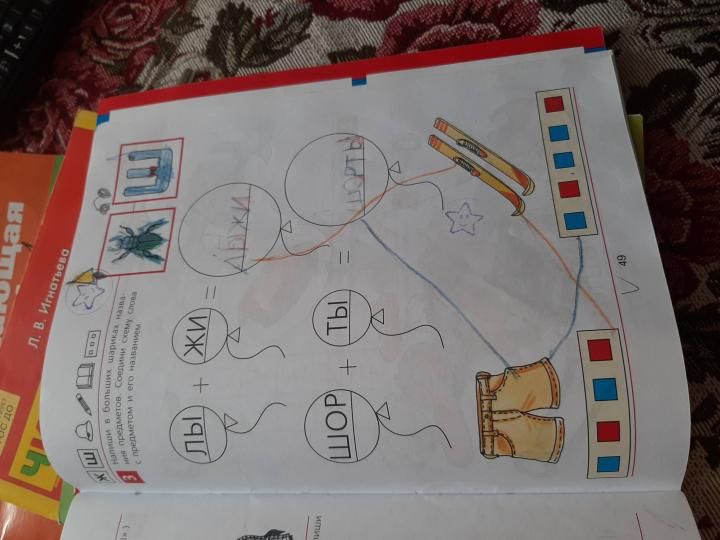 Л. В. Игнатьева
ающая
ОС ДО
Ж Ш
3 Напиши в больших шариках назва-
ния предметов. Соедини схему слова
с предметом и его названием.
Ш
ЛЫ + ЖИ = ЛЫЖИ
ШОР + ТЫ = ШОРТЫ
49
пиши